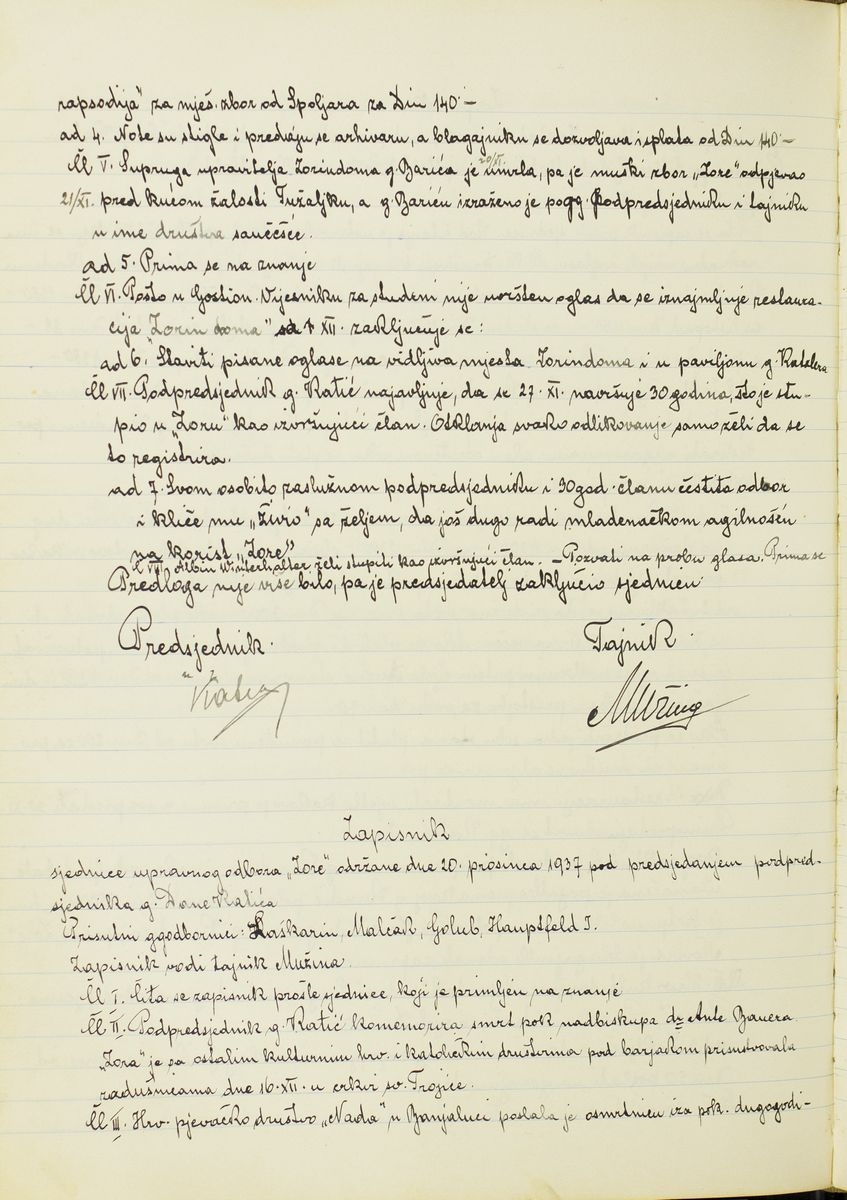 rapsodija" za mješ. zbor od Špoljara za Din 140·–
ad 4. Note su stigle i predaju se arhivaru, a blagajniku se dozvoljava isplata od Din 140–
Čl V. Supruga upravitelja Zorindoma g. Barića je 20/XI. umrla, pa je muški zbor „Zore" odpjevao
21/XI. pred kućom žalosti Tužaljku, a g. Bariću izraženo je po gg. Podpredsjedniku i tajniku
u ime društva saučešće.
ad 5. Prima se na znanje
Čl VI. Pošto u Gostion. Vjesniku za studeni nije uvršten oglas da se iznajmljuje restaura-
cija „Zorin doma" sa 1 XII. zaključuje se:
ad 6. Staviti pisane oglase na vidljiva mjesta Zorindoma i u paviljonu g. Katalera
Čl VII. Podpredsjednik g. Katić najavljuje, da se 27. XI. navršuje 30 godina, što je stu-
pio u „Zoru" kao izvršujući član. Otklanja svako odlikovanje samo želi da se
to registrira.
ad 7. Svom osobito zaslužnom podpredsjedniku i 30 god. članu čestita odbor
i kliče mu „Živio" sa željom, da još dugo radi mladenačkom agilnošću
na korist „Zore"
Čl VIII. Albin Winterhalter želi stupiti kao izvršujući član. – Pozvati na probu glasa. Prima se
Predloga nije više bilo, pa je predsjedatelj zaključio sjednicu.
Predsjednik. Tajnik.
Katić Mužina
Zapisnik
sjednice upravnog odbora „Zore" održane dne 20. prosinca 1937 pod predsjedanjem podpred-
sjednika g. Dane Katića
Prisutni gg odbornici: Laškarin, Malčak, Golub, Hauptfeld I.
Zapisnik vodi tajnik Mužina.
Čl I. Čita se zapisnik prošle sjednice, koji je primljen na znanje
Čl II. Podpredsjednik g. Katić komemorira smrt pok nadbiskupa dr Ante Bauera
„Zora" je sa ostalim kulturnim hrv. i katoličkim društvima pod barjakom prisustvovala
zadušnicama dne 16. XII. u crkvi sv. Trojice.
Čl III. Hrv. pjevačko društvo „Nada" u Banjaluci poslala je osmrtnicu iza pok. dugogodi-